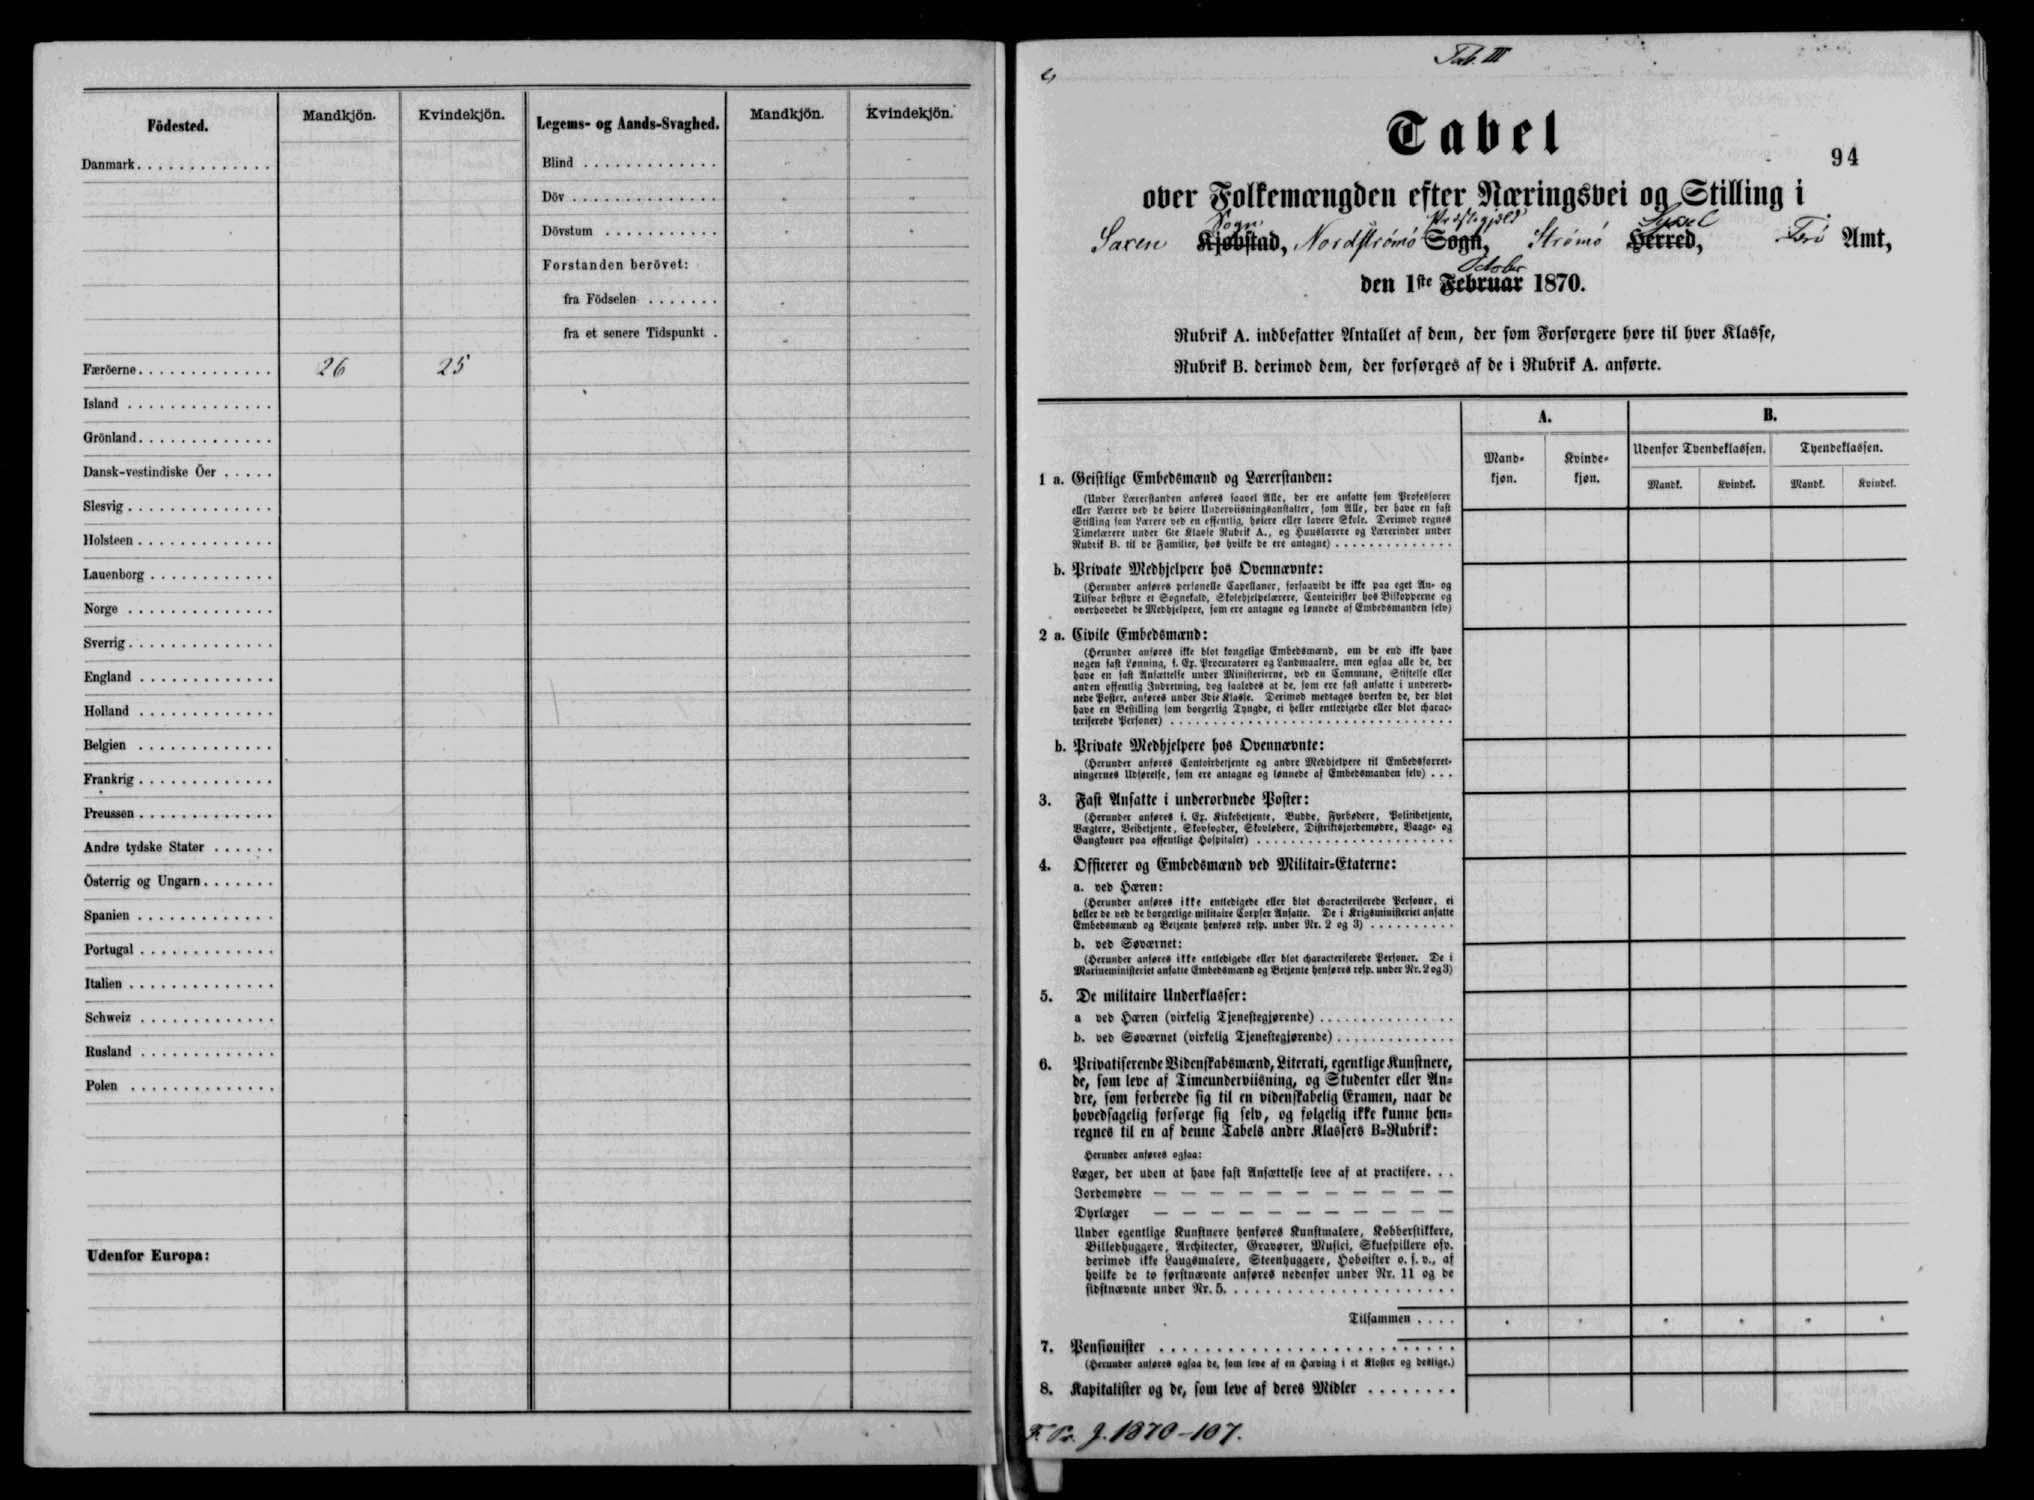 Födested.
Mandkjön.
Kvindekjön.
Legems- og Aands-Svaghed.
Mandkjön.
Kvindekjön.
Danmark
Blind
Döv
Dövstum
Forstanden berövet:
fra Födselen
fra et senere Tidspunkt
Færöerne 26 25
Island
Grönland
Dansk-vestindiske Öer
Slesvig
Holsteen
Lauenborg
Norge
Sverrig
England
Holland
Belgien
Frankrig
Preussen
Andre tydske Stater
Österrig og Ungarn
Spanien
Portugal
Italien
Schweiz
Rusland
Polen
Udenfor Europa:
Tab. III
Tabel
94
over Folkemængden efter Næringsvei og Stilling i
Sogn Præstegjeld Syssel
Saxen Kjøbstad, Nordstrømø Sogn, Strømø Herred, Færø Amt,
October
den 1ste Februar 1870.
Rubrik A. indbefatter Antallet af dem, der som Forsørgere høre til hver Klasse,
Rubrik B. derimod dem, der forsørges af de i Rubrik A. anførte.
A. B.
Mandkjøn.
Kvindekjøn.
Udenfor Tyendeklassen.
Tyendeklassen.
Mandk. Kvindek. Mandk. Kvindek.
1 a. Geistlige Embedsmænd og Lærerstanden:
(Under Lærerstanden anføres saavel Alle, der ere ansatte som Professorer
eller Lærere ved de høiere Underviisningsanstalter, som Alle, der have en fast
Stilling som Lærere ved en offentlig, høiere eller lavere Skole. Derimod regnes
Timelærere under 6te Klasse Rubrik A., og Huuslærere og Lærerinder under
Rubrik B. til de Familier, hos hvilke de ere antagne)
b. Private Medhjelpere hos Ovennævnte:
(Herunder anføres personelle Capellaner, forsaavidt de ikke paa eget An- og
Tilsvar bestyre et Sognekald, Skolehjelpelærere, Contoirister hos Biskopperne og
overhovedet de Medhjelpere, som ere antagne og lønnede af Embedsmanden selv)
2 a. Civile Embedsmænd:
(Herunder anføres ikke blot kongelige Embedsmænd, om de end ikke have
nogen fast Lønning, f. Ex. Procuratorer og Landmaalere, men ogsaa alle de, der
have en fast Ansættelse under Ministerierne, ved en Commune, Stiftelse eller
anden offentlig Indretning, dog saaledes at de, som ere fast ansatte i underord-
nede Poster, anføres under 3die Klasse. Derimod medtages hverken de, der blot
have en Bestilling som borgerlig Tyngde, ei heller entledigede eller blot charac-
teriserede Personer)
b. Private Medhjelpere hos Ovennævnte:
(Herunder anføres Contoirbetjente og andre Medhjelpere til Embedsforret-
ningernes Udførelse, som ere antagne og lønnede af Embedsmanden selv)
3. Fast Ansatte i underordnede Poster:
(Herunder anføres f. Ex. Kirkebetjente, Budde, Fyrbødere, Politibetjente,
Vægtere, Veibetjente, Skovfogder, Skovløbere, Distriktsjordemødre, Vaage- og
Gangkoner paa offentlige Hospitaler)
4. Officerer og Embedsmænd ved Militair-Etaterne:
a. ved Hæren:
(Herunder anføres ikke entledigede eller blot characteriserede Personer, ei
heller de ved de borgerlige militaire Corpser Ansatte. De i Krigsministeriet ansatte
Embedsmænd og Betjente henføres resp. under Nr. 2 og 3)
b. ved Søværnet:
(Herunder anføres ikke entledigede eller blot characteriserede Personer. De i
Marineministeriet ansatte Embedsmænd og Betjente henføres resp. under Nr. 2 og 3)
5. De militaire Underklasser:
a ved Hæren (virkelig Tjenestegjørende)
b. ved Søværnet (virkelig Tjenestegjørende)
6. Privatiserende Videnskabsmænd, Literati, egentlige Kunstnere,
de, som leve af Timeunderviisning, og Studenter eller An-
dre, som forberede sig til en videnskabelig Examen, naar de
hovedsagelig forsørge sig selv, og følgelig ikke kunne hen-
regnes til en af denne Tabels andre Klassers B-Rubrik:
Herunder anføres ogsaa:
Læger, der uden at have fast Ansættelse leve af at practisere
Jordemødre — — — — — — — — — — —
Dyrlæger — — — — — — — — — — —
Under egentlige Kunstnere henføres Kunstmalere, Kobberstikkere,
Billedhuggere, Architecter, Gravører, Musici, Skuespillere osv.
derimod ikke Laugsmalere, Steenhuggere, Hoboister o. s. v., af
hvilke de to førstnævnte anføres nedenfor under Nr. 11 og de
sidstnævnte under Nr. 5.
Tilsammen
7. Pensionister
(Herunder anføres ogsaa de, som leve af en Hæving i et Kloster og deslige.)
8. Kapitalister og de, som leve af deres Midler
F. Pr. J. 1870-107.